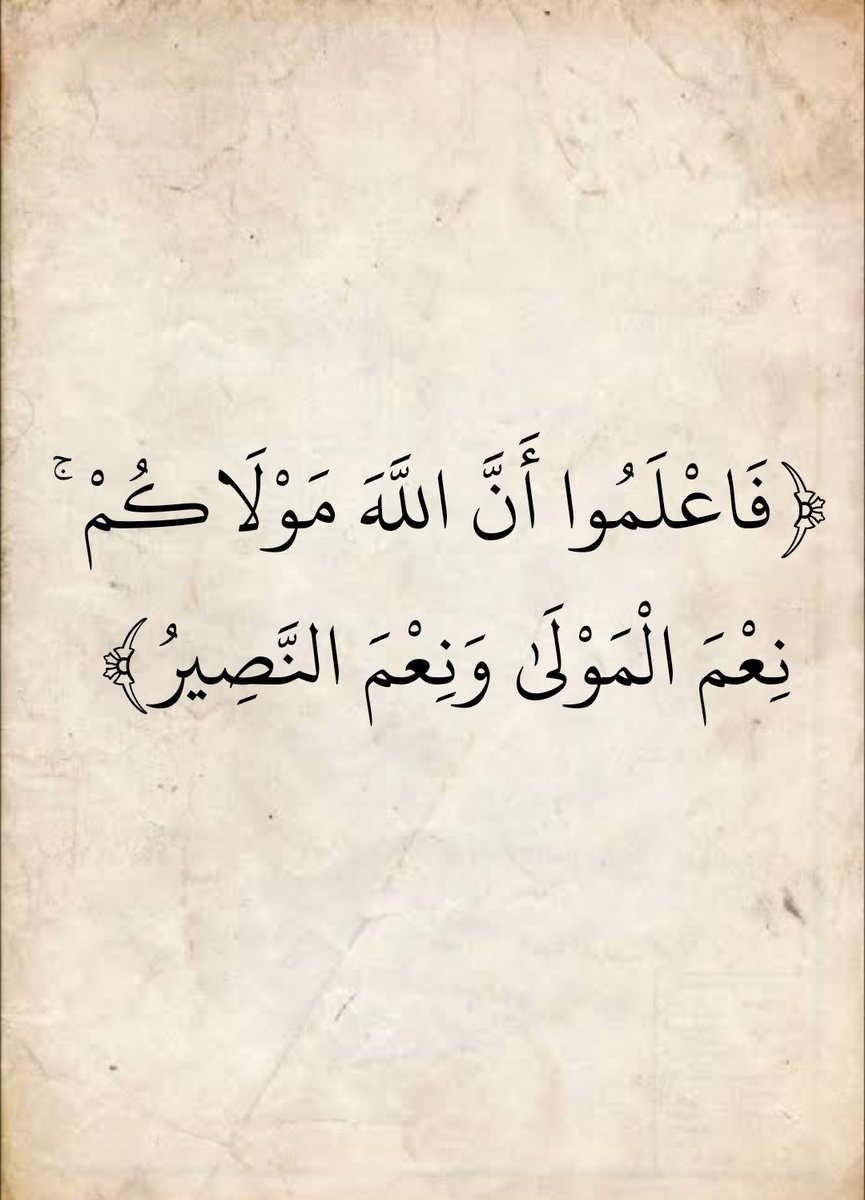 ﴿فَاعْلَمُوا أَنَّ اللَّهَ مَوْلَاكُمْ ۚ
نِعْمَ الْمَوْلَىٰ وَنِعْمَ النَّصِيرُ﴾